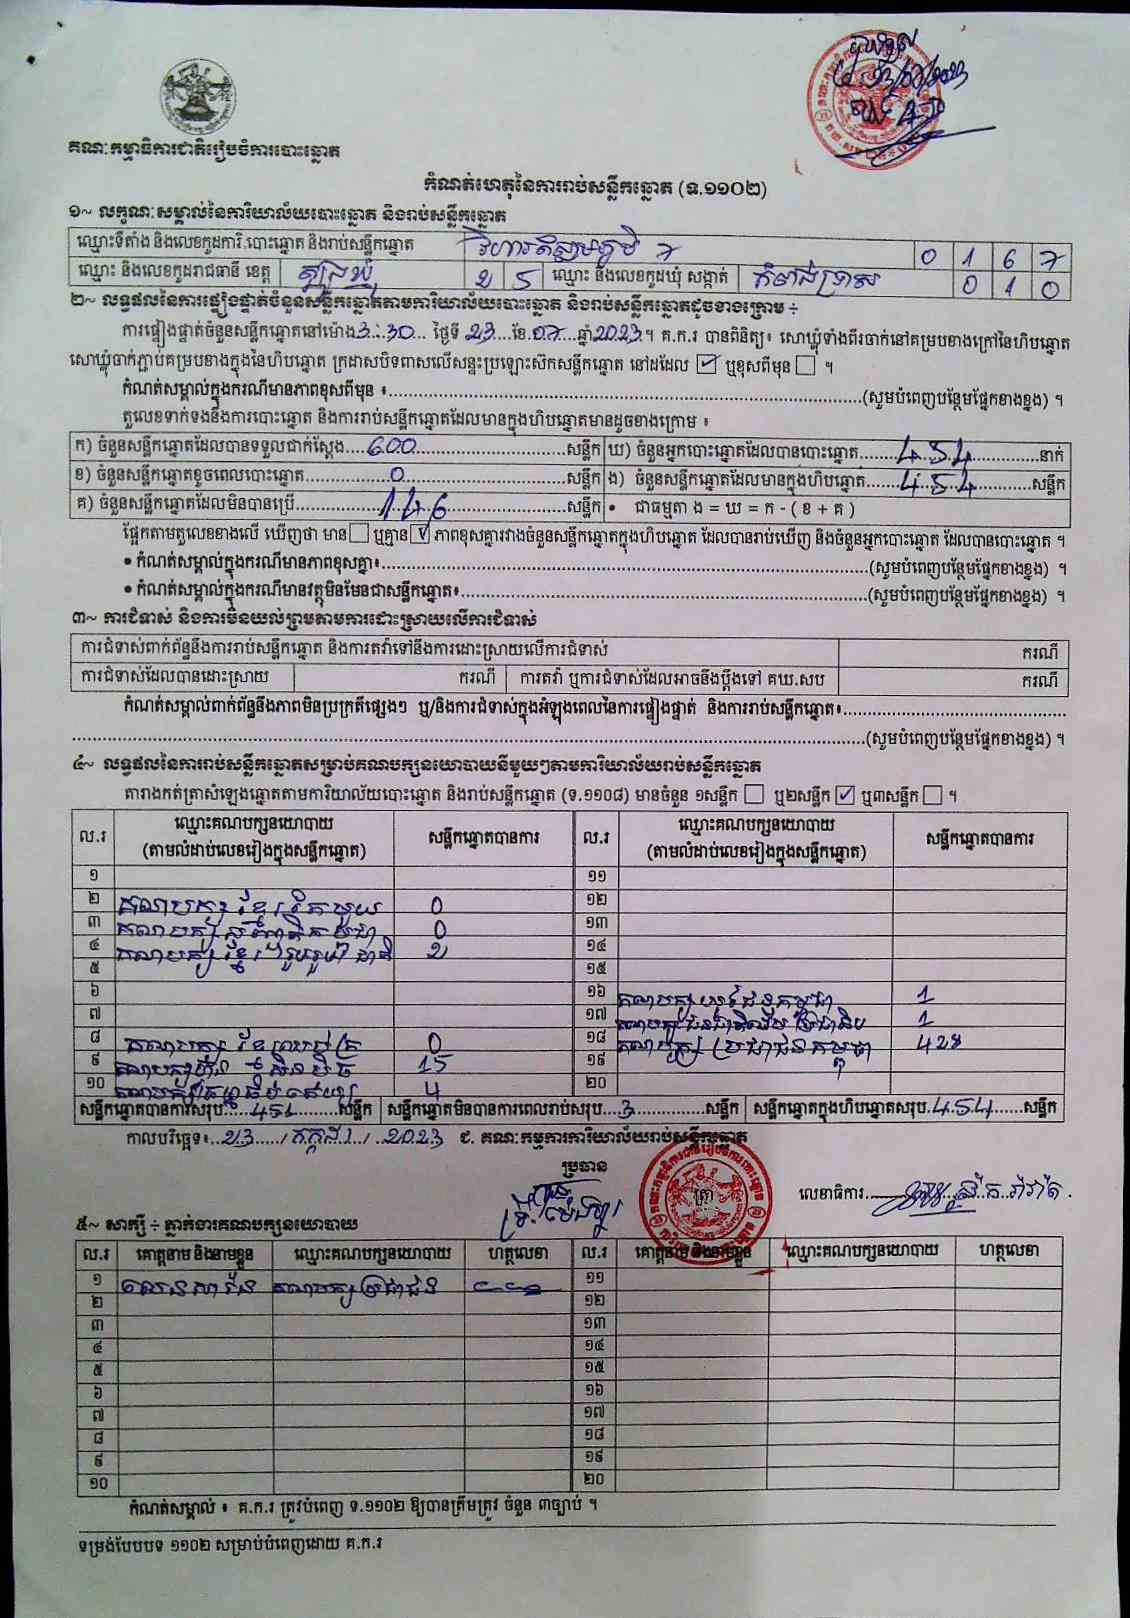 គណៈកម្មាធិការជាតិរៀបចំការបោះឆ្នោត
កំណត់ហេតុនៃការរាប់សន្លឹកឆ្នោត (ទ.១១០២)
១~ លក្ខណៈសម្គាល់នៃការិយាល័យបោះឆ្នោត និងរាប់សន្លឹកឆ្នោត
ឈ្មោះទីតាំង និងលេខកូដការិ.បោះឆ្នោត និងរាប់សន្លឹកឆ្នោត 0 1 6 7
ឈ្មោះ និងលេខកូដរាជធានី ខេត្ត ត្បូងឃ្មុំ 2 5 ឈ្មោះ និងលេខកូដឃុំ សង្កាត់ 0 1 0
២~ លទ្ធផលនៃការផ្ទៀងផ្ទាត់ចំនួនសន្លឹកឆ្នោតតាមការិយាល័យបោះឆ្នោត និងរាប់សន្លឹកឆ្នោតដូចខាងក្រោម ÷
ការផ្ទៀងផ្ទាត់ចំនួនសន្លឹកឆ្នោតនៅម៉ោង 3:30 ថ្ងៃទី 23 ខែ 07 ឆ្នាំ 2023។ គ.ក.រ បានពិនិត្យ៖ សោឃ្លុំទាំងពីរចាក់នៅគម្របខាងក្រៅនៃហិបឆ្នោត
សោឃ្លុំចាក់ភ្ជាប់គម្របខាងក្នុងនៃហិបឆ្នោត ក្រដាសបិទពាសលើសន្ទះប្រឡោះស៊កសន្លឹកឆ្នោត នៅដដែល ☑ ឬខុសពីមុន ☐ ។
កំណត់សម្គាល់ក្នុងករណីមានភាពខុសពីមុន ៖ (សូមបំពេញបន្ថែមផ្នែកខាងខ្នង) ។
តួលេខទាក់ទងនឹងការបោះឆ្នោត និងការរាប់សន្លឹកឆ្នោតដែលមានក្នុងហិបឆ្នោតមានដូចខាងក្រោម ៖
ក) ចំនួនសន្លឹកឆ្នោតដែលបានទទួលជាក់ស្តែង 600 សន្លឹក ឃ) ចំនួនអ្នកបោះឆ្នោតដែលបានបោះឆ្នោត 454 នាក់
ខ) ចំនួនសន្លឹកឆ្នោតខូចពេលបោះឆ្នោត 0 សន្លឹក ង) ចំនួនសន្លឹកឆ្នោតដែលមានក្នុងហិបឆ្នោត 454 សន្លឹក
គ) ចំនួនសន្លឹកឆ្នោតដែលមិនបានប្រើ 146 សន្លឹក • ជាធម្មតា ង = ឃ = ក - ( ខ + គ )
ផ្អែកតាមតួលេខខាងលើ ឃើញថា មាន ☐ ឬគ្មាន ☑ ភាពខុសគ្នារវាងចំនួនសន្លឹកឆ្នោតក្នុងហិបឆ្នោត ដែលបានរាប់ឃើញ និងចំនួនអ្នកបោះឆ្នោត ដែលបានបោះឆ្នោត ។
• កំណត់សម្គាល់ក្នុងករណីមានភាពខុសគ្នា៖ (សូមបំពេញបន្ថែមផ្នែកខាងខ្នង) ។
• កំណត់សម្គាល់ក្នុងករណីមានវត្ថុមិនមែនជាសន្លឹកឆ្នោត៖ (សូមបំពេញបន្ថែមផ្នែកខាងខ្នង) ។
៣~ ការជំទាស់ និងការមិនយល់ព្រមតាមការដោះស្រាយលើការជំទាស់
ការជំទាស់ពាក់ព័ន្ធនឹងការរាប់សន្លឹកឆ្នោត និងការតវ៉ាទៅនឹងការដោះស្រាយលើការជំទាស់ ករណី
ការជំទាស់ដែលបានដោះស្រាយ ករណី ការតវ៉ា ឬការជំទាស់ដែលអាចនឹងប្តឹងទៅ គឃ.សប ករណី
កំណត់សម្គាល់ពាក់ព័ន្ធនឹងភាពមិនប្រក្រតីផ្សេងៗ ឬ/និងការជំទាស់ក្នុងអំឡុងពេលនៃការផ្ទៀងផ្ទាត់ និងការរាប់សន្លឹកឆ្នោត៖
(សូមបំពេញបន្ថែមផ្នែកខាងខ្នង) ។
៤~ លទ្ធផលនៃការរាប់សន្លឹកឆ្នោតសម្រាប់គណបក្សនយោបាយនីមួយៗតាមការិយាល័យរាប់សន្លឹកឆ្នោត
តារាងកត់ត្រាសំឡេងឆ្នោតតាមការិយាល័យបោះឆ្នោត និងរាប់សន្លឹកឆ្នោត (ទ.១១០៨) មានចំនួន ១សន្លឹក ☐ ឬ២សន្លឹក ☑ ឬ៣សន្លឹក ☐ ។
ល.រ ឈ្មោះគណបក្សនយោបាយ (តាមលំដាប់លេខរៀងក្នុងសន្លឹកឆ្នោត) សន្លឹកឆ្នោតបានការ ល.រ ឈ្មោះគណបក្សនយោបាយ (តាមលំដាប់លេខរៀងក្នុងសន្លឹកឆ្នោត) សន្លឹកឆ្នោតបានការ
១ ១១
២ គណបក្ស ខ្មែរតែមួយ 0 ១២
៣ គណបក្ស 0 ១៣
៤ គណបក្ស ខ្មែររួបរួមជាតិ 2 ១៤
៥ ១៥
៦ ១៦ គណបក្ស យុវជនកម្ពុជា 1
៧ ១៧ គណបក្ស 1
៨ គណបក្ស 0 ១៨ គណបក្ស ប្រជាជនកម្ពុជា 428
៩ គណបក្ស 15 ១៩
១០ 4 ២០
សន្លឹកឆ្នោតបានការសរុប 451 សន្លឹក សន្លឹកឆ្នោតមិនបានការពេលរាប់សរុប 3 សន្លឹក សន្លឹកឆ្នោតក្នុងហិបឆ្នោតសរុប 454 សន្លឹក
កាលបរិច្ឆេទ៖ 23 / កក្កដា / 2023 ជ. គណៈកម្មការការិយាល័យរាប់សន្លឹកឆ្នោត
ប្រធាន
លេខាធិការ
៥~ សាក្សី ÷ ភ្នាក់ងារគណបក្សនយោបាយ
ល.រ គោត្តនាម និងនាមខ្លួន ឈ្មោះគណបក្សនយោបាយ ហត្ថលេខា ល.រ គោត្តនាម និងនាមខ្លួន ឈ្មោះគណបក្សនយោបាយ ហត្ថលេខា
១ គណបក្ស ប្រជាជន ១១
២ ១២
៣ ១៣
៤ ១៤
៥ ១៥
៦ ១៦
៧ ១៧
៨ ១៨
៩ ១៩
១០ ២០
កំណត់សម្គាល់ ៖ គ.ក.រ ត្រូវបំពេញ ទ.១១០២ ឱ្យបានត្រឹមត្រូវ ចំនួន ៣ច្បាប់ ។
ទម្រង់បែបបទ ១១០២ សម្រាប់បំពេញដោយ គ.ក.រ